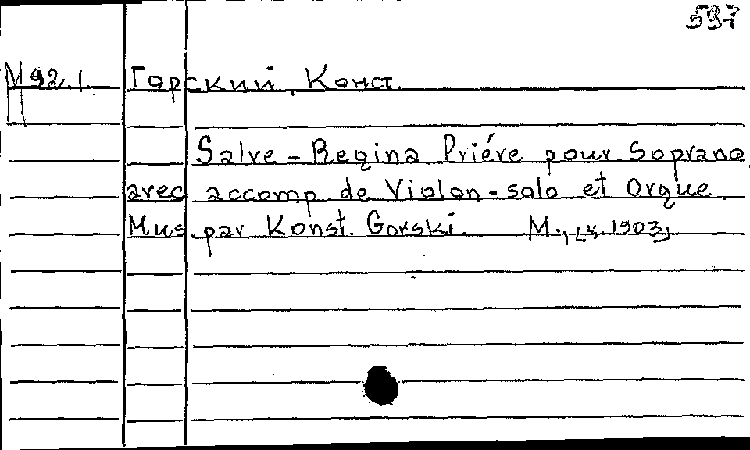 597
М 92.1. Горский, Конст.
Salve-Regina Priére pour Soprano
avec accomp de Violon-solo et Orgue.
Mus par Konst. Gorski. M., [s. 1903]